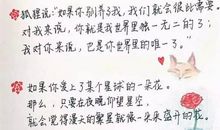 狐狸说:“如果你驯养了我,我们就会彼此需要。
对我来说,你就是我世界里独一无二的了;
我对你来说,也是你世界里的唯一了。”
如果你爱上了某个星球的一朵花。
那么,只要在夜晚仰望星空,
就会觉得漫天的繁星就像一朵朵盛开的花。